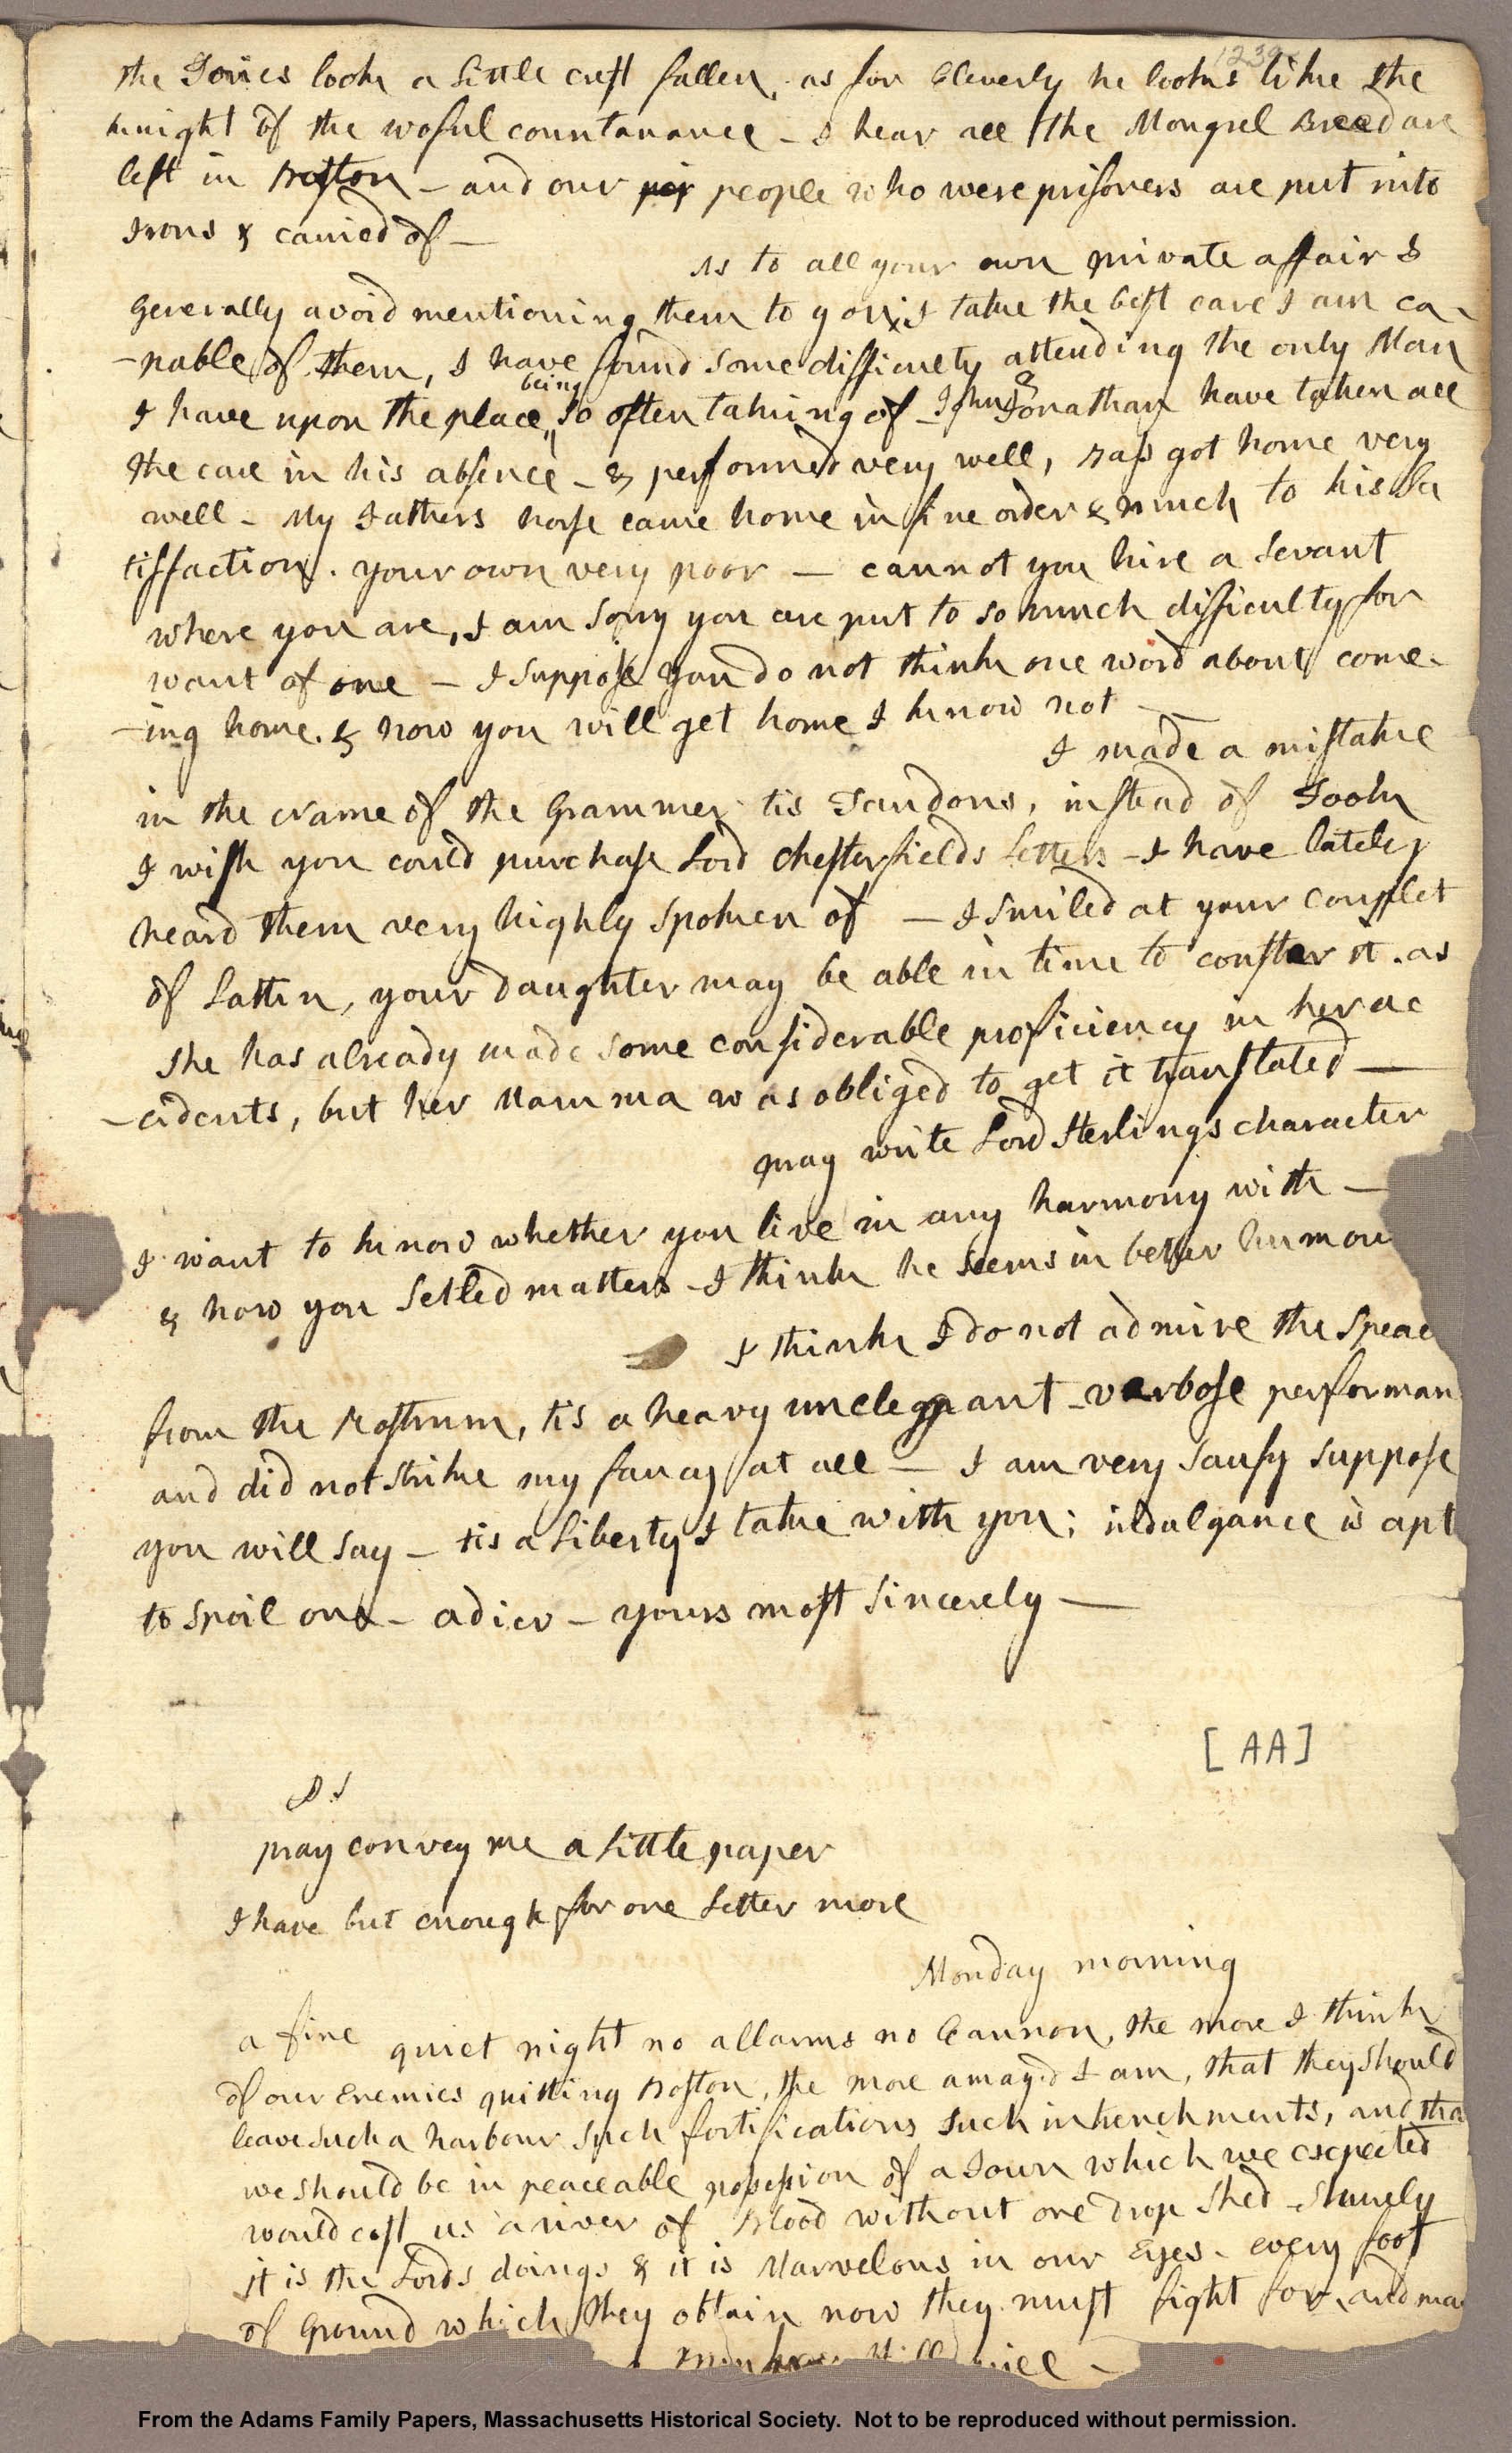 1239
the Tories look a little crest fallen, as for Cleverly he looks like the
knight of the woful countanance - I hear all the Mongrel Breed are
left in Boston - and our people who were prisoners are put into
Irons & carried of -
As to all your own private affair I
Generally avoid mentioning them to you; I take the best care I am ca-
-pable of them, I have found some difficulty attending the only Man
I have upon the place being so often taking of - John & Jonathan have taken all
the care in his absence - & performed very well, Bass got home very
well - My Fathers horse came home in fine order & much to his sa
tisfaction. your own very poor - cannot you hire a Servant
where you are, I am sorry you are put to so much difficulty for
want of one - I suppose you do not think one word about come-
-ing home. & how you will get home I know not -
I made a mistake
in the Name of the Grammer tis Tandons, instead of Took
I wish you could purchase Lord Chesterfields Letters - I have lately
heard them very highly spoken of - I smiled at your couplet
of Lattin, your daughter may be able in time to conster it. as
she has already made some considerable proficiency in her ac
-cidents, but her Mamma was obliged to get it translated -
pray write Lord Sterlings character
I want to know whether you live in any harmony with -
& how you setled matters - I think he seems in better humour
I think I do not admire the Speac
from the Rostrum, tis a heavy unelegant - verbose performan
and did not strike my fancy at all - I am very sausy suppose
you will say - tis a Liberty I take with you; indulgance is apt
to spoil one - adieu - yours most Sincerely -
[AA]
PS
pray convey me a little paper
I have but enough for one Letter more
Monday morning
a fine quiet night no allarms no Cannon, the more I think
of our Enemies quitting Boston, the more amaz'd I am, that they should
leave such a harbour such fortifications such intrenchments, and tha
we should be in peaceable possession of a Town which we expected
would cost us a river of Blood without one drop shed - Shurely
it is the Lords doings & it is Marvelous in our Eyes - every foot
of Ground which they obtain now they must fight for, and ma
From the Adams Family Papers, Massachusetts Historical Society. Not to be reproduced without permission.